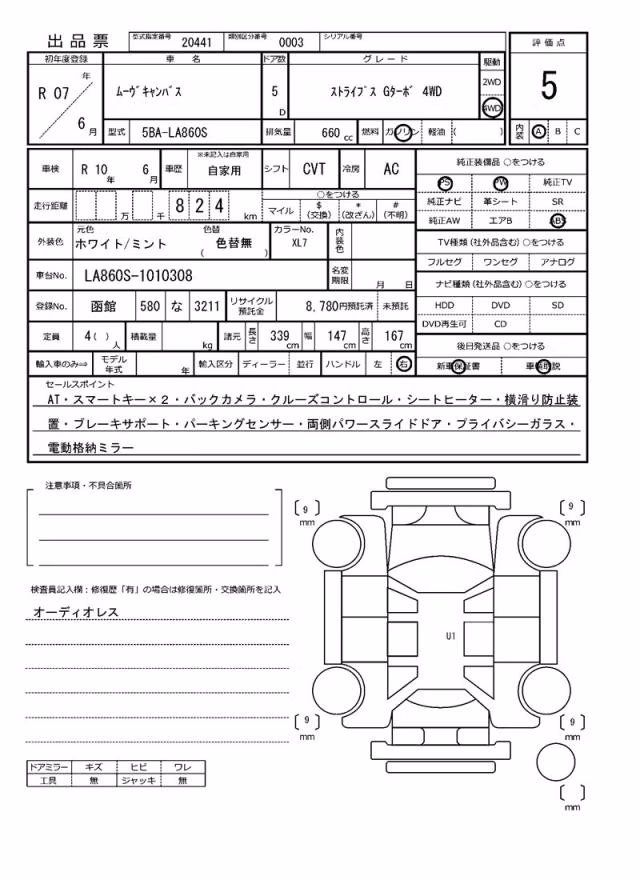 出品票 型式指定番号 20441 類別区分番号 0003 シリアル番号
評価点
5
内装 A B C
初年度登録 車名 ドア数 グレード 駆動
R 07 年 6 月 ﾑｰｳﾞｷｬﾝﾊﾞｽ 5 D ｽﾄﾗｲﾌﾟｽ Gﾀｰﾎﾞ 4WD 2WD 4WD
型式 5BA-LA860S 排気量 660 cc 燃料 ガソリン 軽油 ( )
車検 R 10 年 6 月 車歴 ※未記入は自家用 自家用 シフト CVT 冷房 AC
走行距離 万 千 8 2 4 km ○をつける
マイル $ (交換) * (改ざん) # (不明)
外装色 元色 ホワイト/ミント 色替 ( 色替無 ) カラーNo. XL7 内装色
車台No. LA860S-1010308 名変期限 月 日
登録No. 函館 580 な 3211 リサイクル預託金 8,780円預託済 未預託
定員 4 ( ) 人 積載量 kg 諸元 長さ 339 cm 幅 147 cm 高さ 167 cm
輸入車のみ⇒ モデル年式 年 輸入区分 ディーラー 並行 ハンドル 左 右
純正装備品 ○をつける
PS PW 純正TV
純正ナビ 革シート SR
純正AW エアB ABS
TV種類 (社外品含む) ○をつける
フルセグ ワンセグ アナログ
ナビ種類 (社外品含む) ○をつける
HDD DVD SD
DVD再生可 CD
後日発送品 ○をつける
新車保証書 車輌取説
セールスポイント
AT・スマートキー×2・バックカメラ・クルーズコントロール・シートヒーター・横滑り防止装
置・ブレーキサポート・パーキングセンサー・両側パワースライドドア・プライバシーガラス・
電動格納ミラー
注意事項・不具合箇所
検査員記入欄：修復歴「有」の場合は修復箇所・交換箇所を記入
オーディオレス
ドアミラー キズ ヒビ ワレ
工具 無 ジャッキ 無
( 9 ) mm
( 9 ) mm
U1
( 9 ) mm
( 9 ) mm
( ) mm